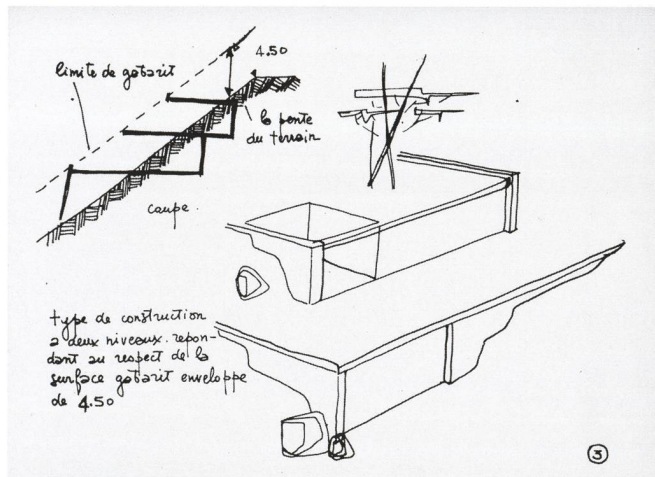 4.50
limite de gabarit
la pente
du terrain
coupe.
type de construction
a deux niveaux. repon-
dant au respect de la
surface gabarit enveloppe
de 4.50
3